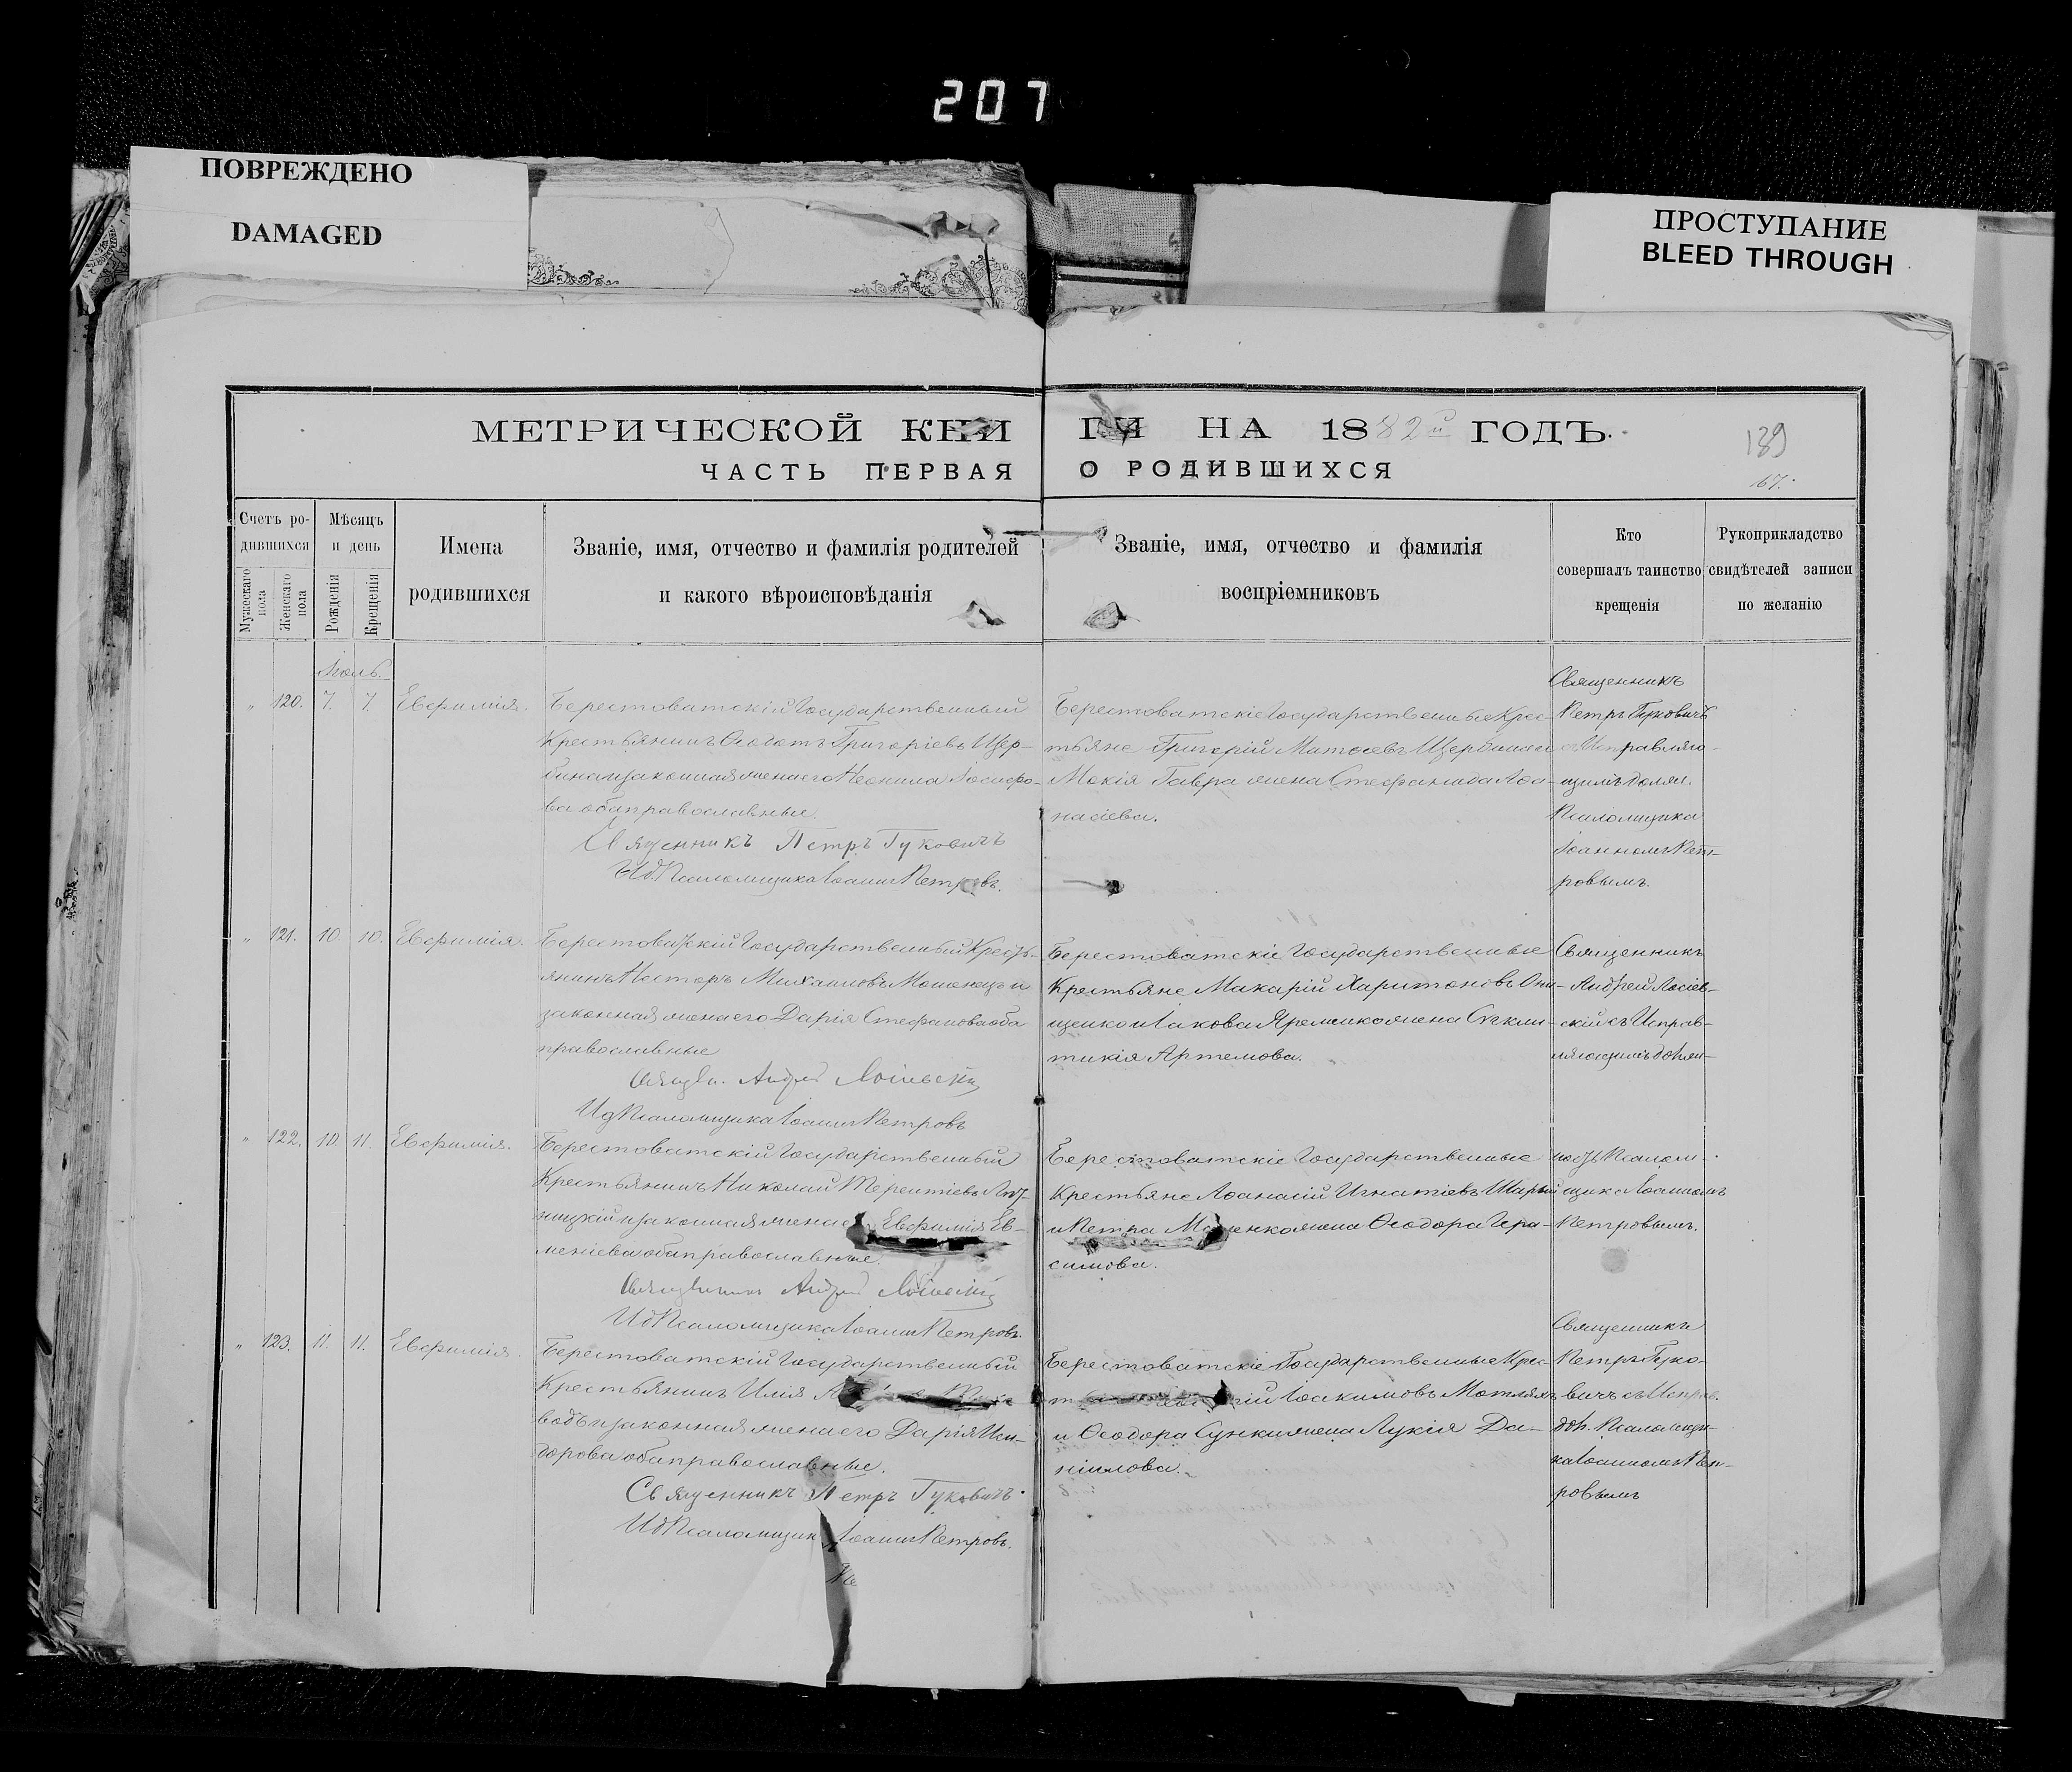 207
ПОВРЕЖДЕНО
DAMAGED
ПРОСТУПАНИЕ
BLEED THROUGH
МЕТРИЧЕСКОЙ КНИГИ НА 1882й ГОДЪ.
139
ЧАСТЬ ПЕРВАЯ О РОДИВШИХСЯ
167.
Счетъ ро-
дившихся
Мужескаго пола
Женскаго пола
Мѣсяцъ
и день
Рожденія
Крещенія
Имена
родившихся
Званіе, имя, отчество и фамилія родителей
и какого вѣроисповѣданія
Званіе, имя, отчество и фамилія
воспріемниковъ
Кто
совершалъ таинство
крещенія
Рукоприкладство
свидѣтелей записи
по желанію
Іюль.
" 120. 7. 7. Евфимія.
Берестоватскій Государственный
Крестьянинъ Ѳеодотъ Григоріевъ Щер-
бина и законная жена его Неонила Іосифо-
ва оба православные.
Священникъ Петръ Гуковичъ
И д Псаломщика Іоаннъ Петровъ.
Берестоватскіе Государственные Крес-
тьяне Григорій Матѳеевъ Щербина и
Мокія Гавра жена Стефанида Аѳа-
насіева.
Священникъ
Петръ Гуковичъ
съ Исправляю-
щимъ должн.
Псаломщика
Іоанномъ Пет-
ровымъ.
" 121. 10. 10. Евфимія.
Берестоватскій Государственный Кресть-
янинъ Несторъ Михаиловъ Мошенецъ и
законная жена его Дарія Стефанова оба
православные
Священ. Андрей
И д Псаломщика Іоаннъ Петровъ
Берестоватскіе Государственные
Крестьяне Макарій Харитоновъ Они-
щенко и Іакова Яременко жена Сигкли-
тикія Артемова.
Священникъ
Андрей
скій съ Исправ-
ляющимъ должн-
" 122. 10 11. Евфимія.
Берестоватскій Государственный
Крестьянинъ Николай Терентіевъ
ницкій и законная жена Евфимія Ев-
меніева оба православные.
Священникъ Андрей
И д Псаломщика Іоаннъ Петровъ.
Берестоватскіе Государственные
Крестьяне Аѳанасій Игнатіевъ Шарый
и Петра жена Ѳеодора Гера-
симова.
ность Псалом-
щика Іоанномъ
Петровымъ.
" 123. 11. 11. Евфимія.
Берестоватскій Государственный
Крестьянинъ Илія
водъ и законная жена его Дарія Иси-
дорова оба православные.
Священникъ Петръ Гуковичъ
И д Псаломщик Іоаннъ Петровъ.
Берестоватскіе Государственные Крес-
Іоакимовъ Мотлях
и Ѳеодора Сунки жена Лукія Да-
ніилова.
Священникъ
Петръ Гуко-
вичъ съ Исправ.
долж. Псаломщи-
ка Іоанномъ Пет-
ровымъ